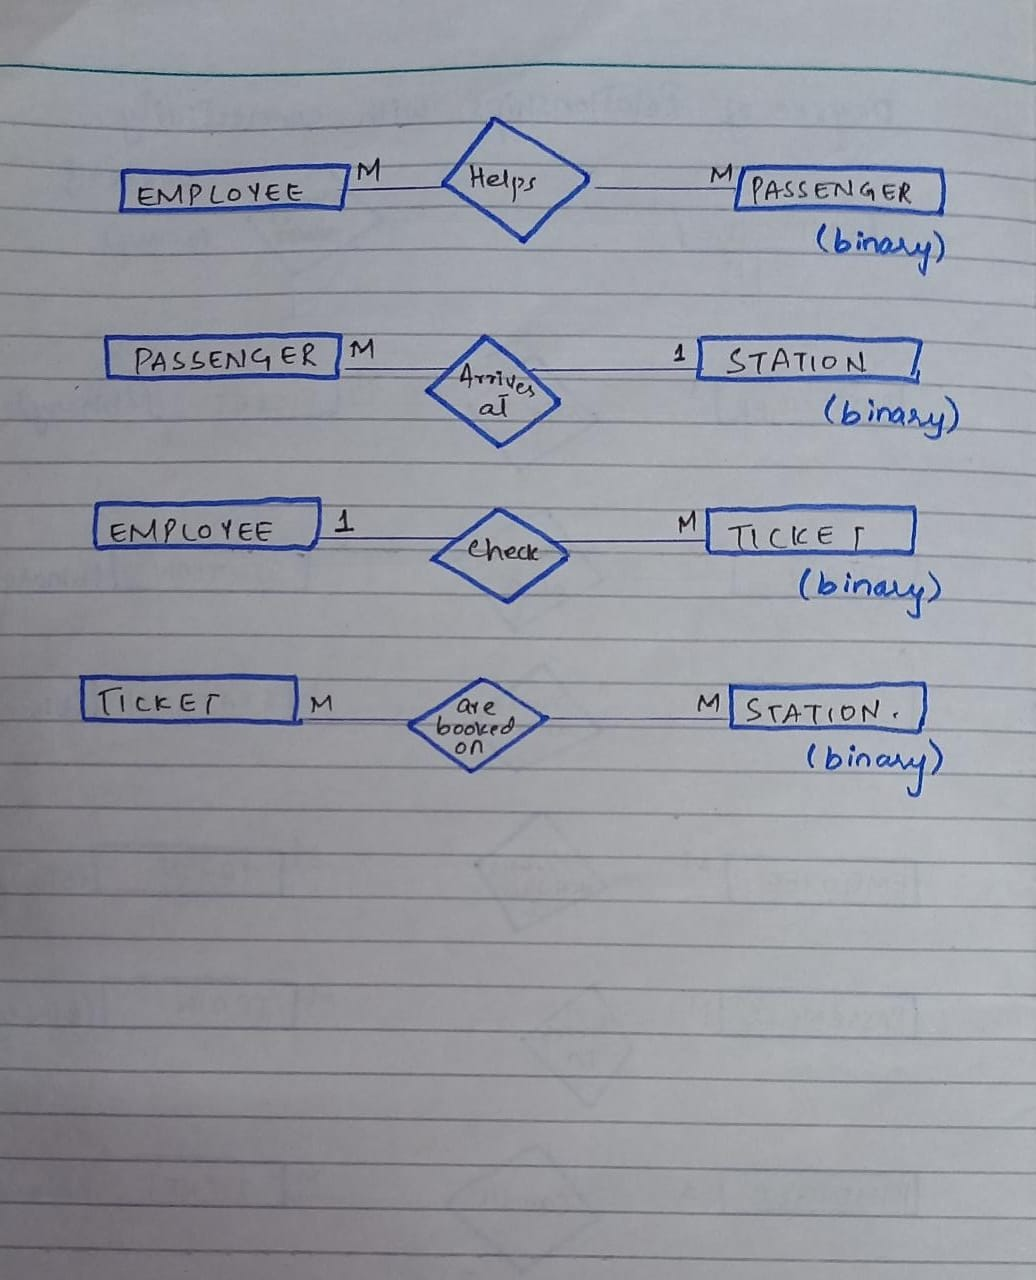 EMPLOYEE M Helps M PASSENGER
(binary)
PASSENGER M Arrives at 1 STATION
(binary)
EMPLOYEE 1 check M TICKET
(binary)
TICKET M are booked on M STATION.
(binary)